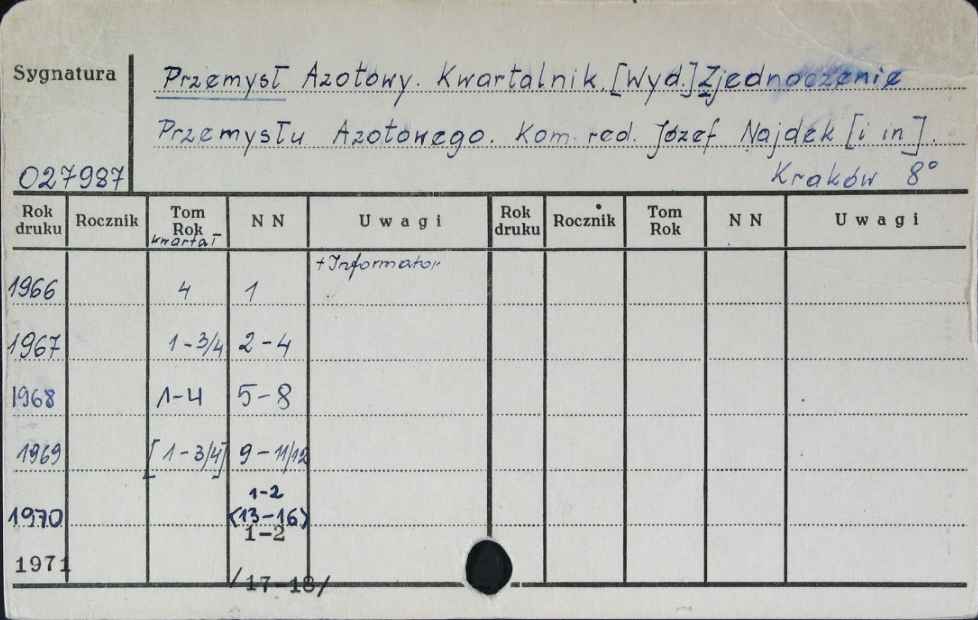 Sygnatura
Przemysł Azotowy. Kwartalnik. [Wyd.] Zjednoczenie
Przemysłu Azotowego. Kom. red. Józef Najdek [i in].
027987
Kraków 8°
Rok druku Rocznik Tom Rok kwartał N N Uwagi Rok druku Rocznik Tom Rok N N Uwagi
+Informator
1966 4 1
1967 1-3/4 2-4
1968 1-4 5-8
1969 [1-3/4] 9-11/12
1-2
1970 (13-16)
1-2
1971
/17-18/